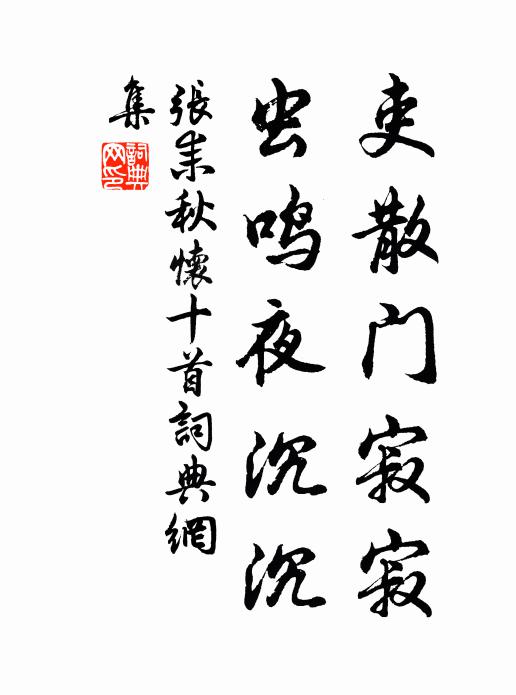 吏散门寂寂
虫鸣夜沉沉
張耒秋懷十首詞典網
集
詞典
网印